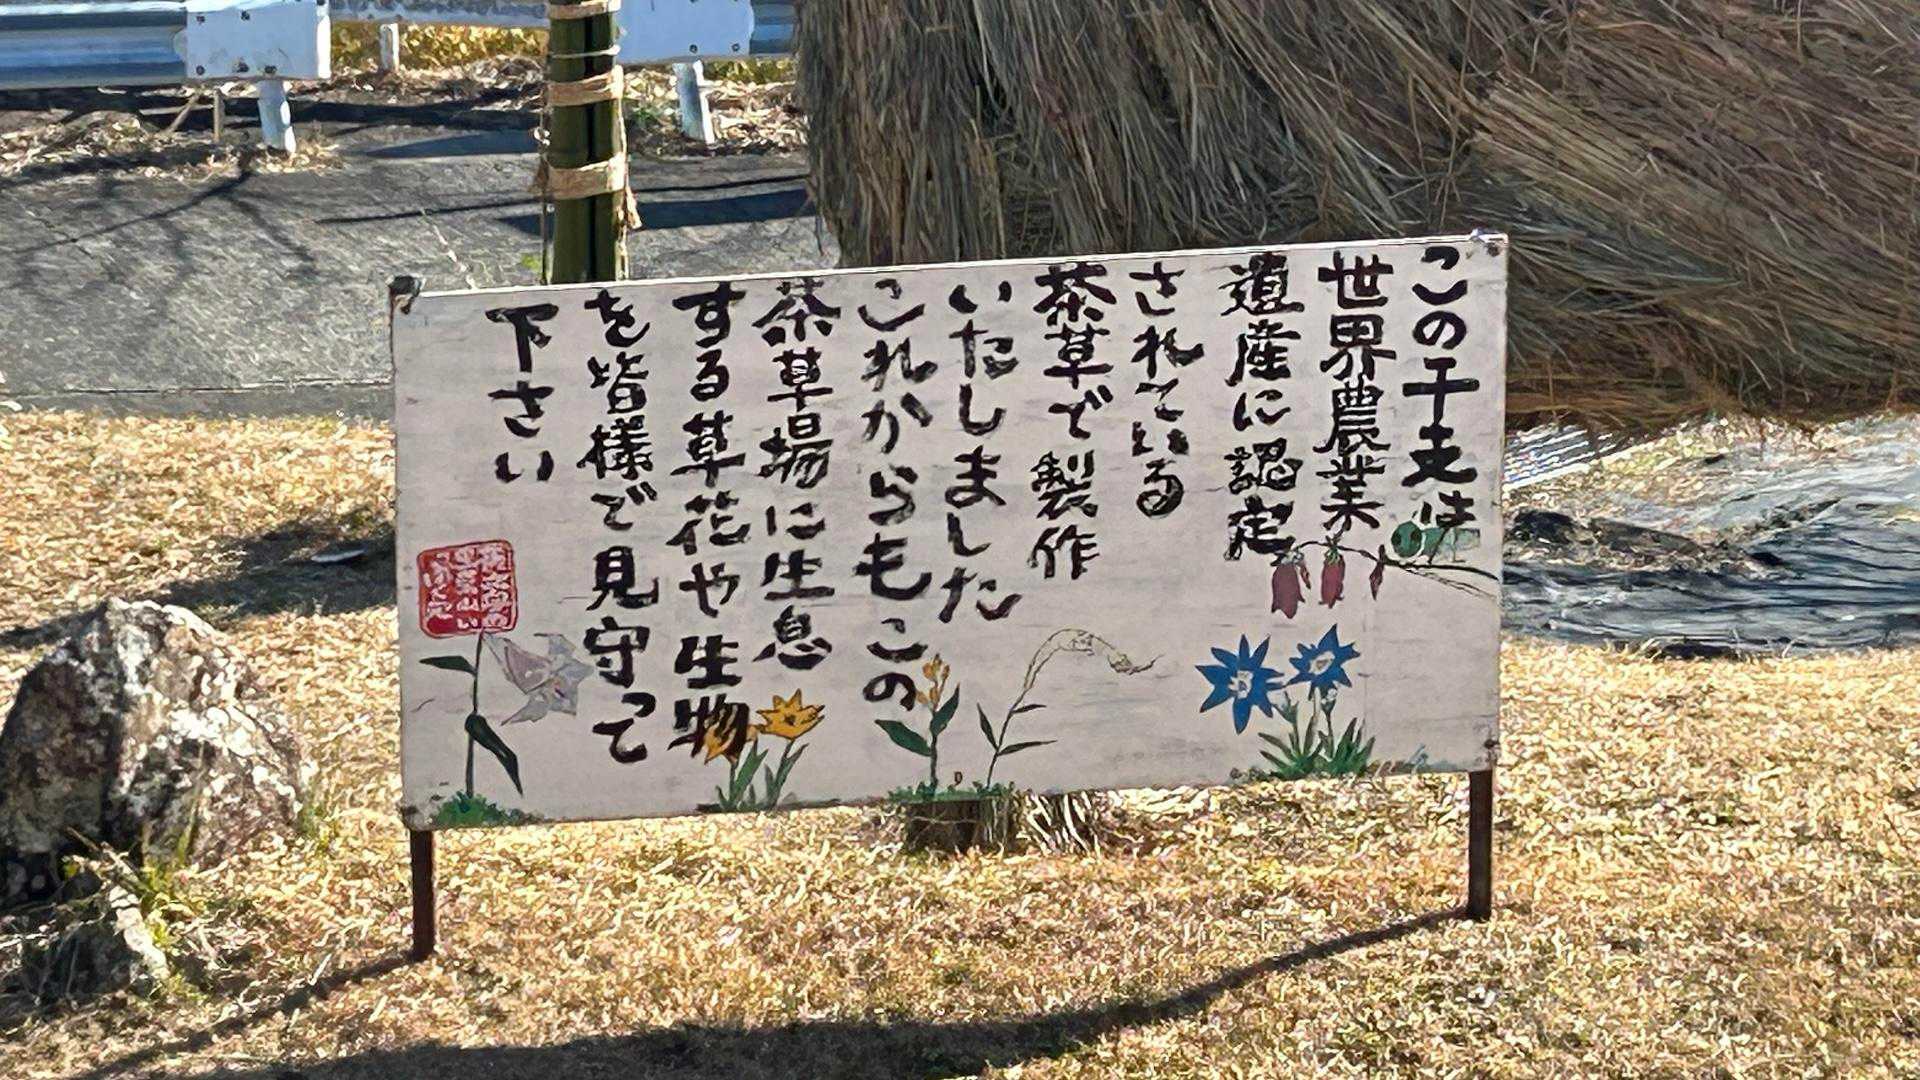 この干支は
世界農業
遺産に認定
されている
茶草で製作
いたしました
これからもこの
茶草場に生息
する草花や生物
を皆様で見守って
下さい